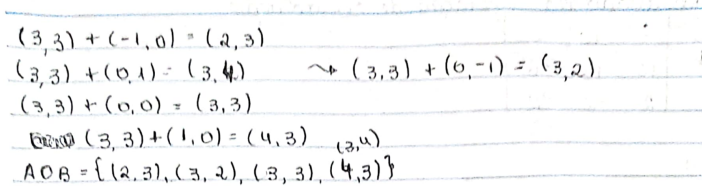 (3,3) + (-1,0) = (2,3)
(3,3) + (0,1) = (3,4) ↝ (3,3) + (0,-1) = (3,2)
(3,3) + (0,0) = (3,3)
(3,3) + (1,0) = (4,3)
(3,4)
A O B = {(2,3), (3,2), (3,3), (4,3)}